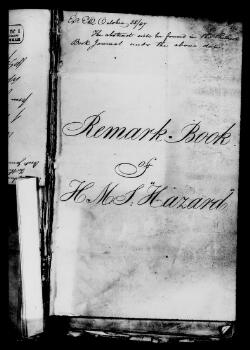 October 28/47
The abstract will be found in the Remark
Book Journal under the above date
Remark Book
of
H.M.S. "Hazard"